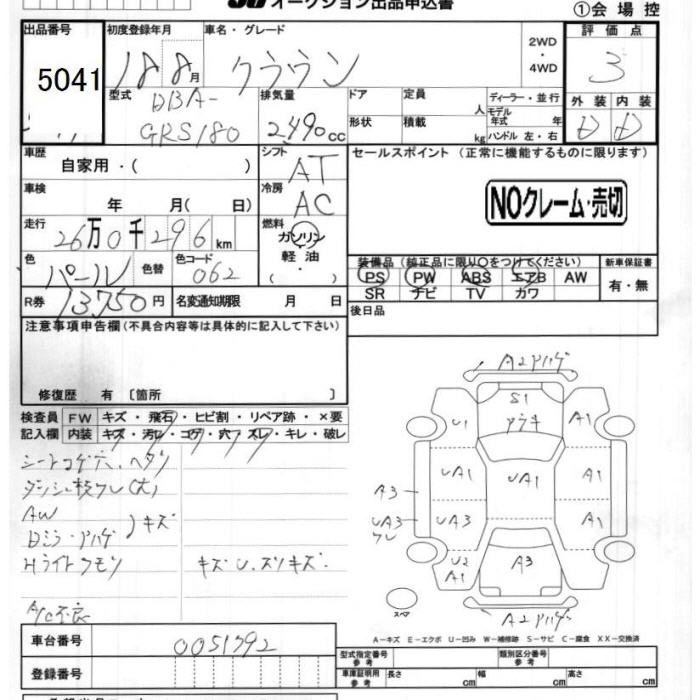 オークション出品申込書
①会場控
出品番号 初度登録年月 車名・グレード 2WD・4WD 評価点
5041 18年 8月 クラウン 3
型式 DBA-GRS180 排気量 2490cc ドア 定員 人 ディーラー・並行 外装 内装
形状 積載 kg モデル年式 年 ハンドル 左・右 D D
車歴 自家用・( ) シフト AT セールスポイント (正常に機能するものに限ります)
車検 年 月( 日) 冷房 AC NOクレーム・売切
走行 26万0千296km 燃料 ガソリン 軽油・( )
色 パール 色替 色コード 062
装備品 (純正品に限り○をつけてください) 新車保証書
PS PW ABS エアB AW 有・無
SR ナビ TV カワ
R券 13750円 名変通知期限 月 日 後日品
注意事項申告欄(不具合内容等は具体的に記入して下さい)
修復歴 有 〔箇所 〕
検査員 FW キズ・飛石・ヒビ割・リペア跡・×要
記入欄 内装 キズ・汚レ・コゲ・穴・スレ・キレ・破レ
シートコゲ穴、ヘタリ
AW
キズ
Hライトクモリ キズU、スリキズ.
A/C不良
A2ハゲ
S1
U1 A1
UA1 UA1 A1
A3
UA3 UA3 A1
U2 A1 A3
スペア A2
A-キズ E-エクボ U-凹み W-補修跡 S-サビ C-腐食 XX-交換済
車台番号 0051792
型式指定番号 参考 類別区分番号 参考
登録番号 車庫証明用 参考 長さ cm 幅 cm 高さ cm